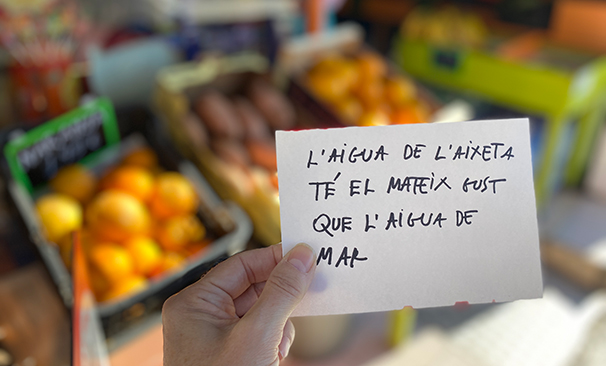 L'AIGUA DE L'AIXETA
TÉ EL MATEIX GUST
QUE L'AIGUA DE
MAR